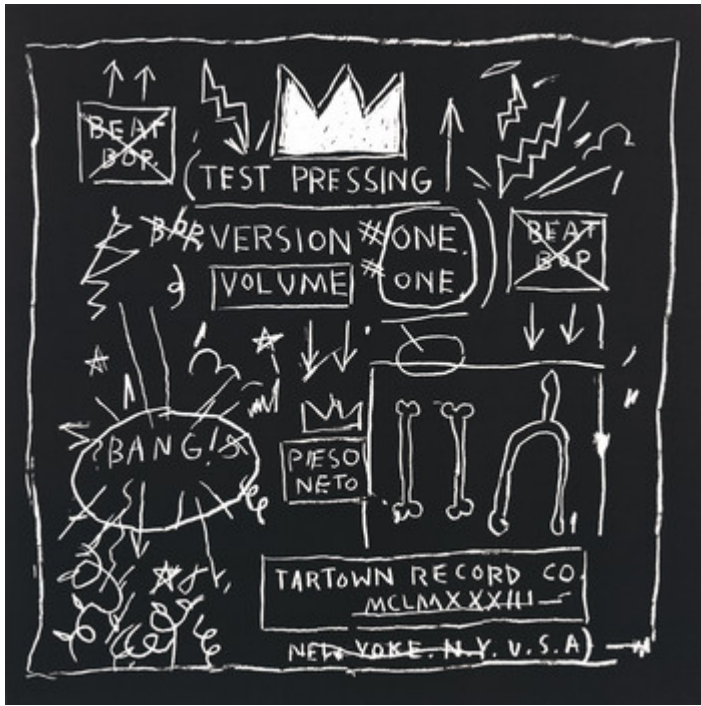 BEAT
BOP.
TEST PRESSING
BOP VERSION # ONE.
VOLUME # ONE
BEAT
BOP
?BANG!S
PESO
NETO
TARTOWN RECORD CO.
MCLMXXXIII
NEW YOKE. N.Y. U.S.A)